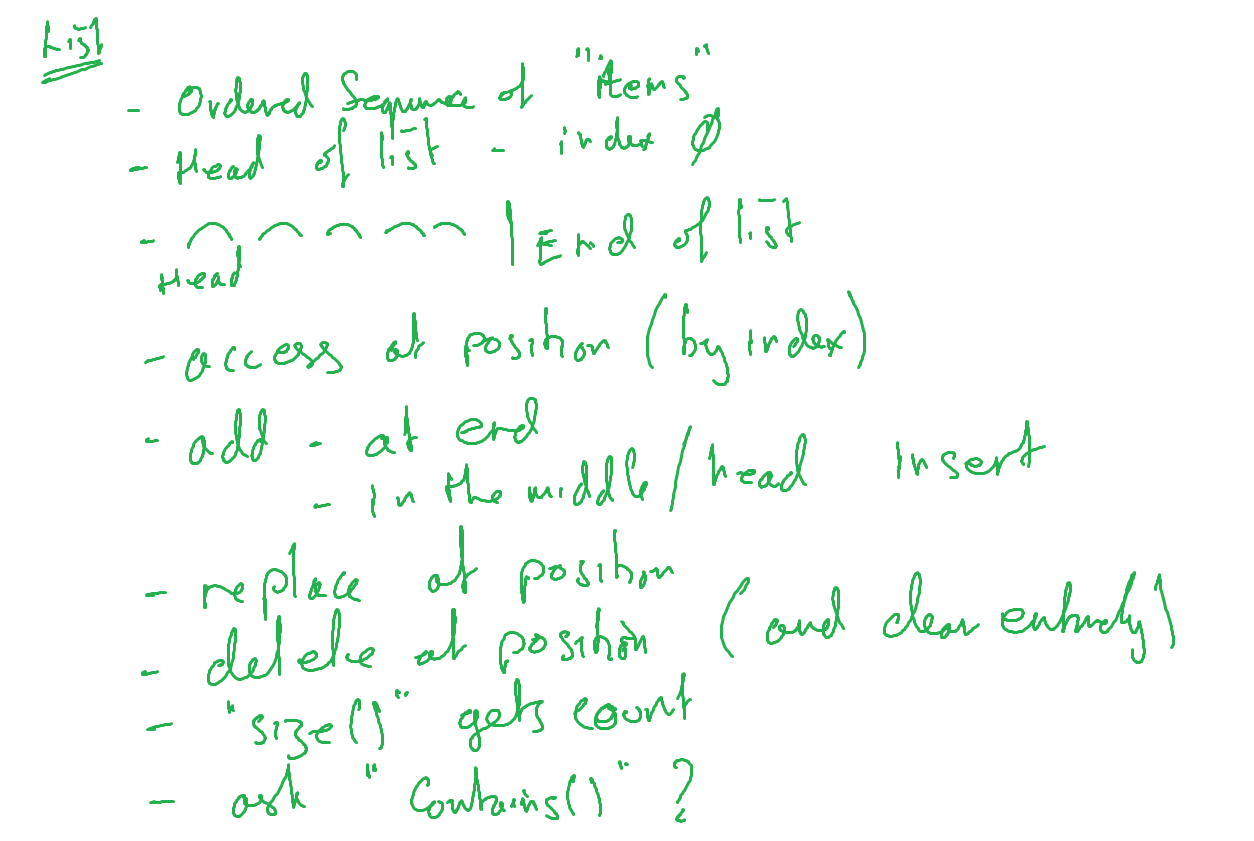 List
- Ordered Sequence of "items"
- Head of list - index 0
- | End of list
Head
- access at position (by index)
- add - at end
- in the middle/head insert
- replace at position
- delete at position (and clear entirely)
- "size()" gets count
- ask "Contains()" ?